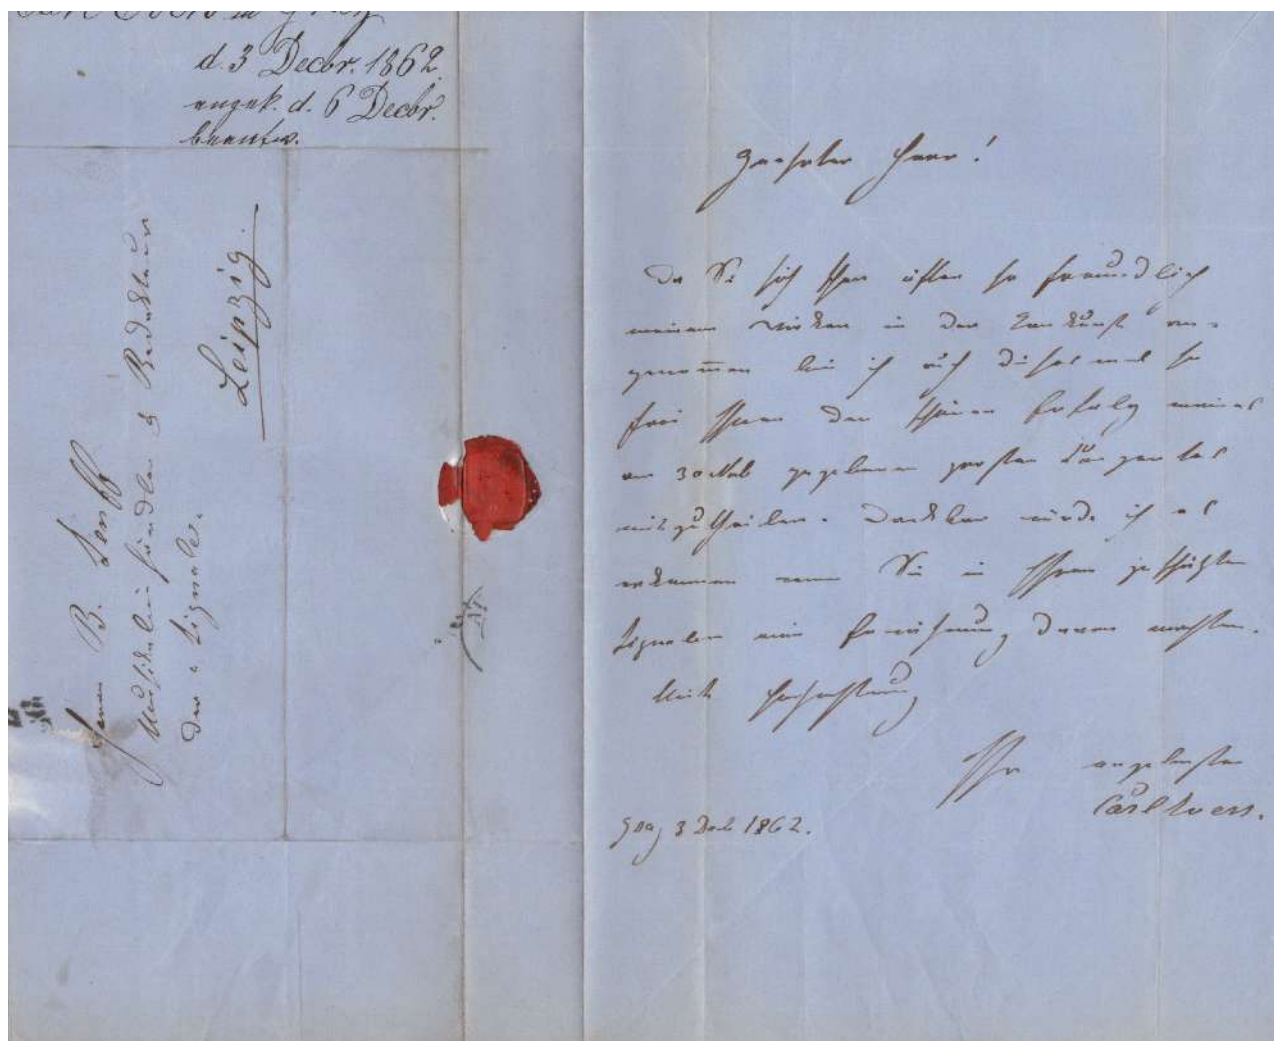 Carl Evers in Graz
d. 3 Decbr. 1862.
angek. d. 6 Decbr.
beantw.
Herrn B. Senff
Musikalienhändler & Redakteur
der « Signale.
Leipzig.
Geehrter Herr!
Da Sie sich schon öfter so freundlich
meinem Wirken in der Tonkunst an-
genommen bin ich auch dieses mal so
frei Ihnen den schönen Erfolg meines
am 30 Nob gegebenen großen Conzertes
mitzutheilen. Dankbar würde ich es
erkennen wenn Sie in Ihren geschätzten
Signalen eine Erwähnung davon machten.
Mit Hochachtung
Ihr ergebenster
Carl Evers.
Graz 3 Deb 1862.